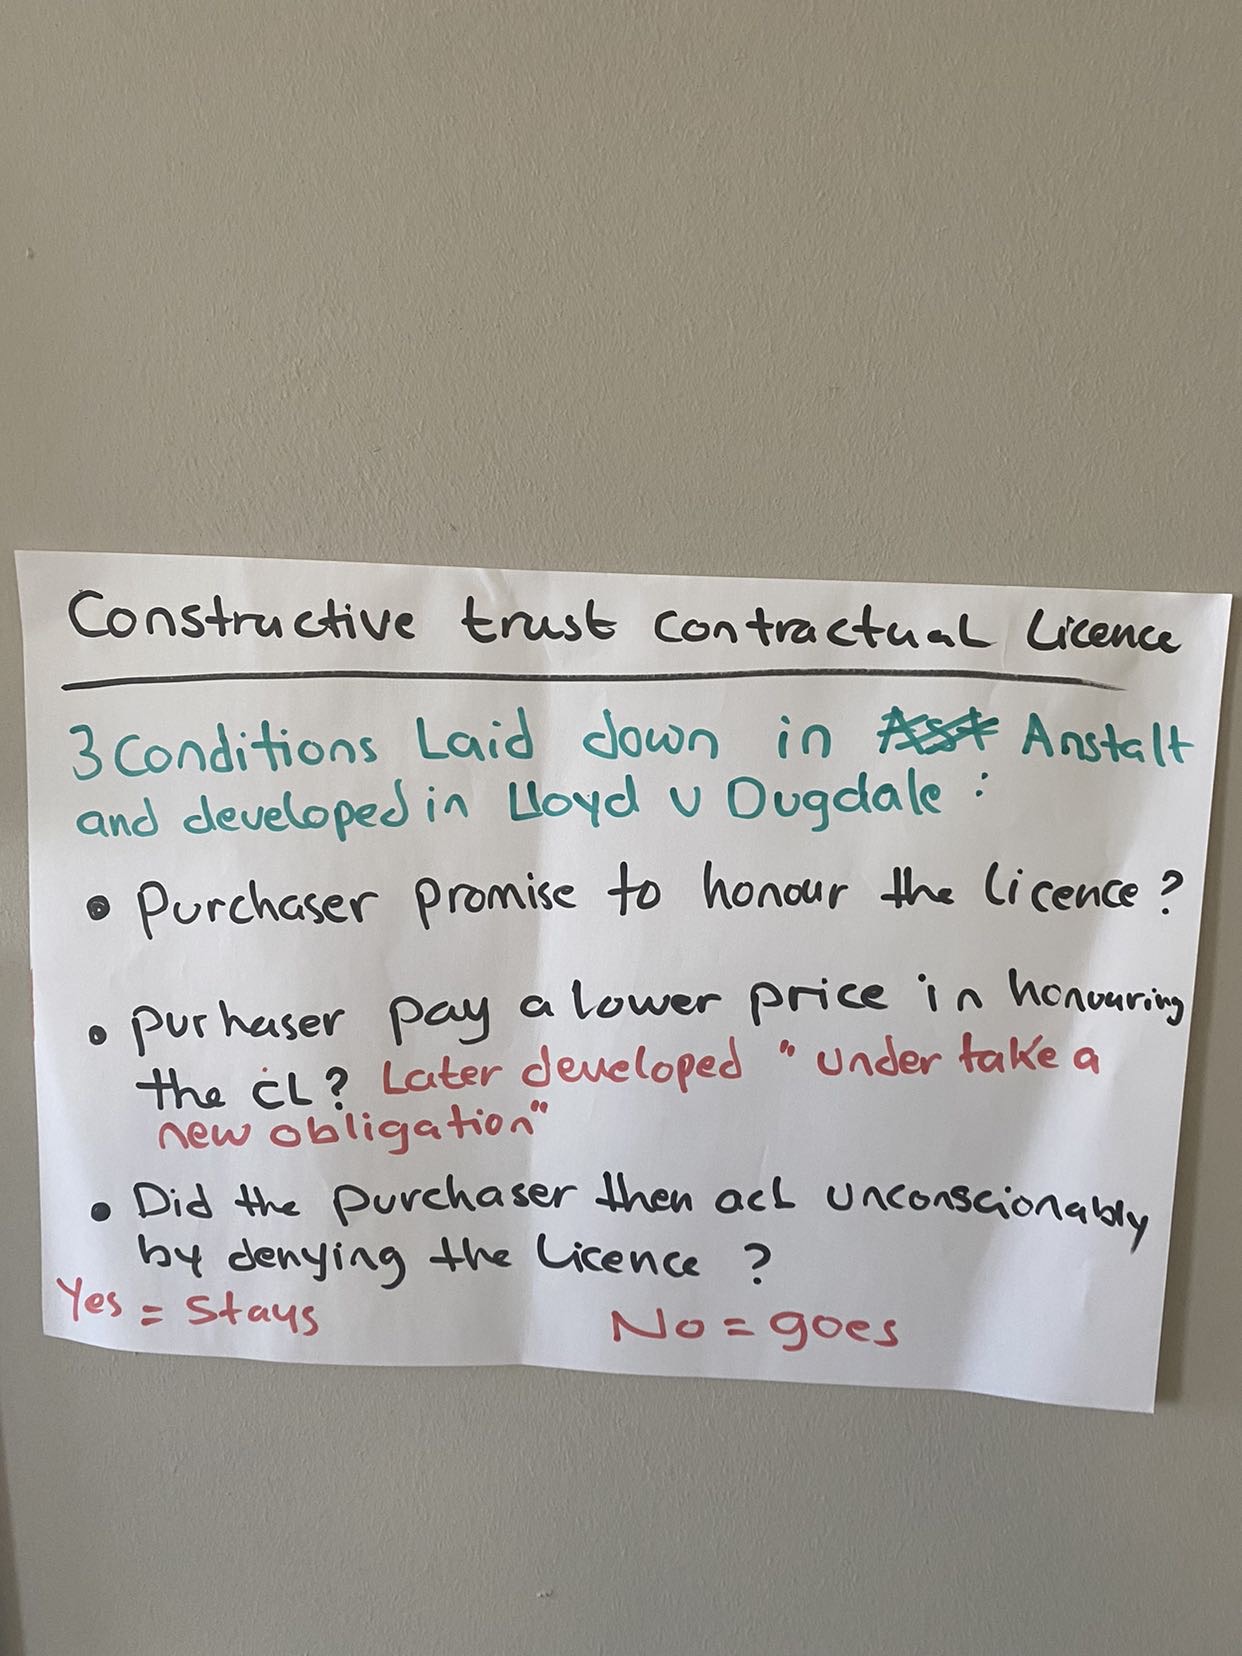 Constructive trust contractual Licence
3 Conditions Laid down in Anstalt
and developed in Lloyd v Dugdale :
• Purchaser promise to honour the Licence?
• Purhaser pay a lower price in honouring
the CL? Later developed "under take a
new obligation"
• Did the purchaser then act unconscionably
by denying the Licence ?
Yes = Stays No = goes